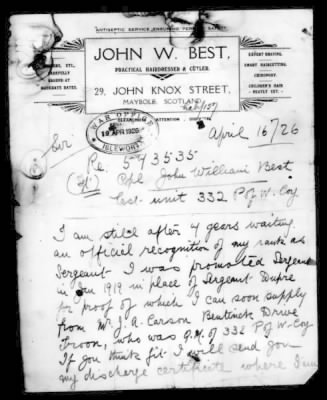 ANTISEPTIC SERVICE ENSURING PERFECT SAFETY
JOHN W. BEST,
PRACTICAL HAIRDRESSER & CUTLER.
29, JOHN KNOX STREET,
MAYBOLE, SCOTLAND
ETC.,
CAREFULLY
GROUND AT
MODERATE RATES.
EXPERT SHAVING.
SMART HAIRCUTTING.
CHIROPODY.
CHILDREN'S HAIR
NEATLY CUT.
ATTENTION
WAR OFFICE
19 APR 1926
ISLEWORTH
April 16/26
Sir
Re. 543535
Cpl John William Best
Last unit 332 P of W. Coy
I am still after 4 years waiting
an official recognition of my rank as
Sergeant I was promoted Sergeant
in Jan 1919 in place of Sergeant Dupre
for proof of which I can soon supply
from Mr J. A. Carson Bentinck Drive
Troon, who was Q.M. of 332 P of W. Coy
If you think fit I will send you
my discharge certificate where I am